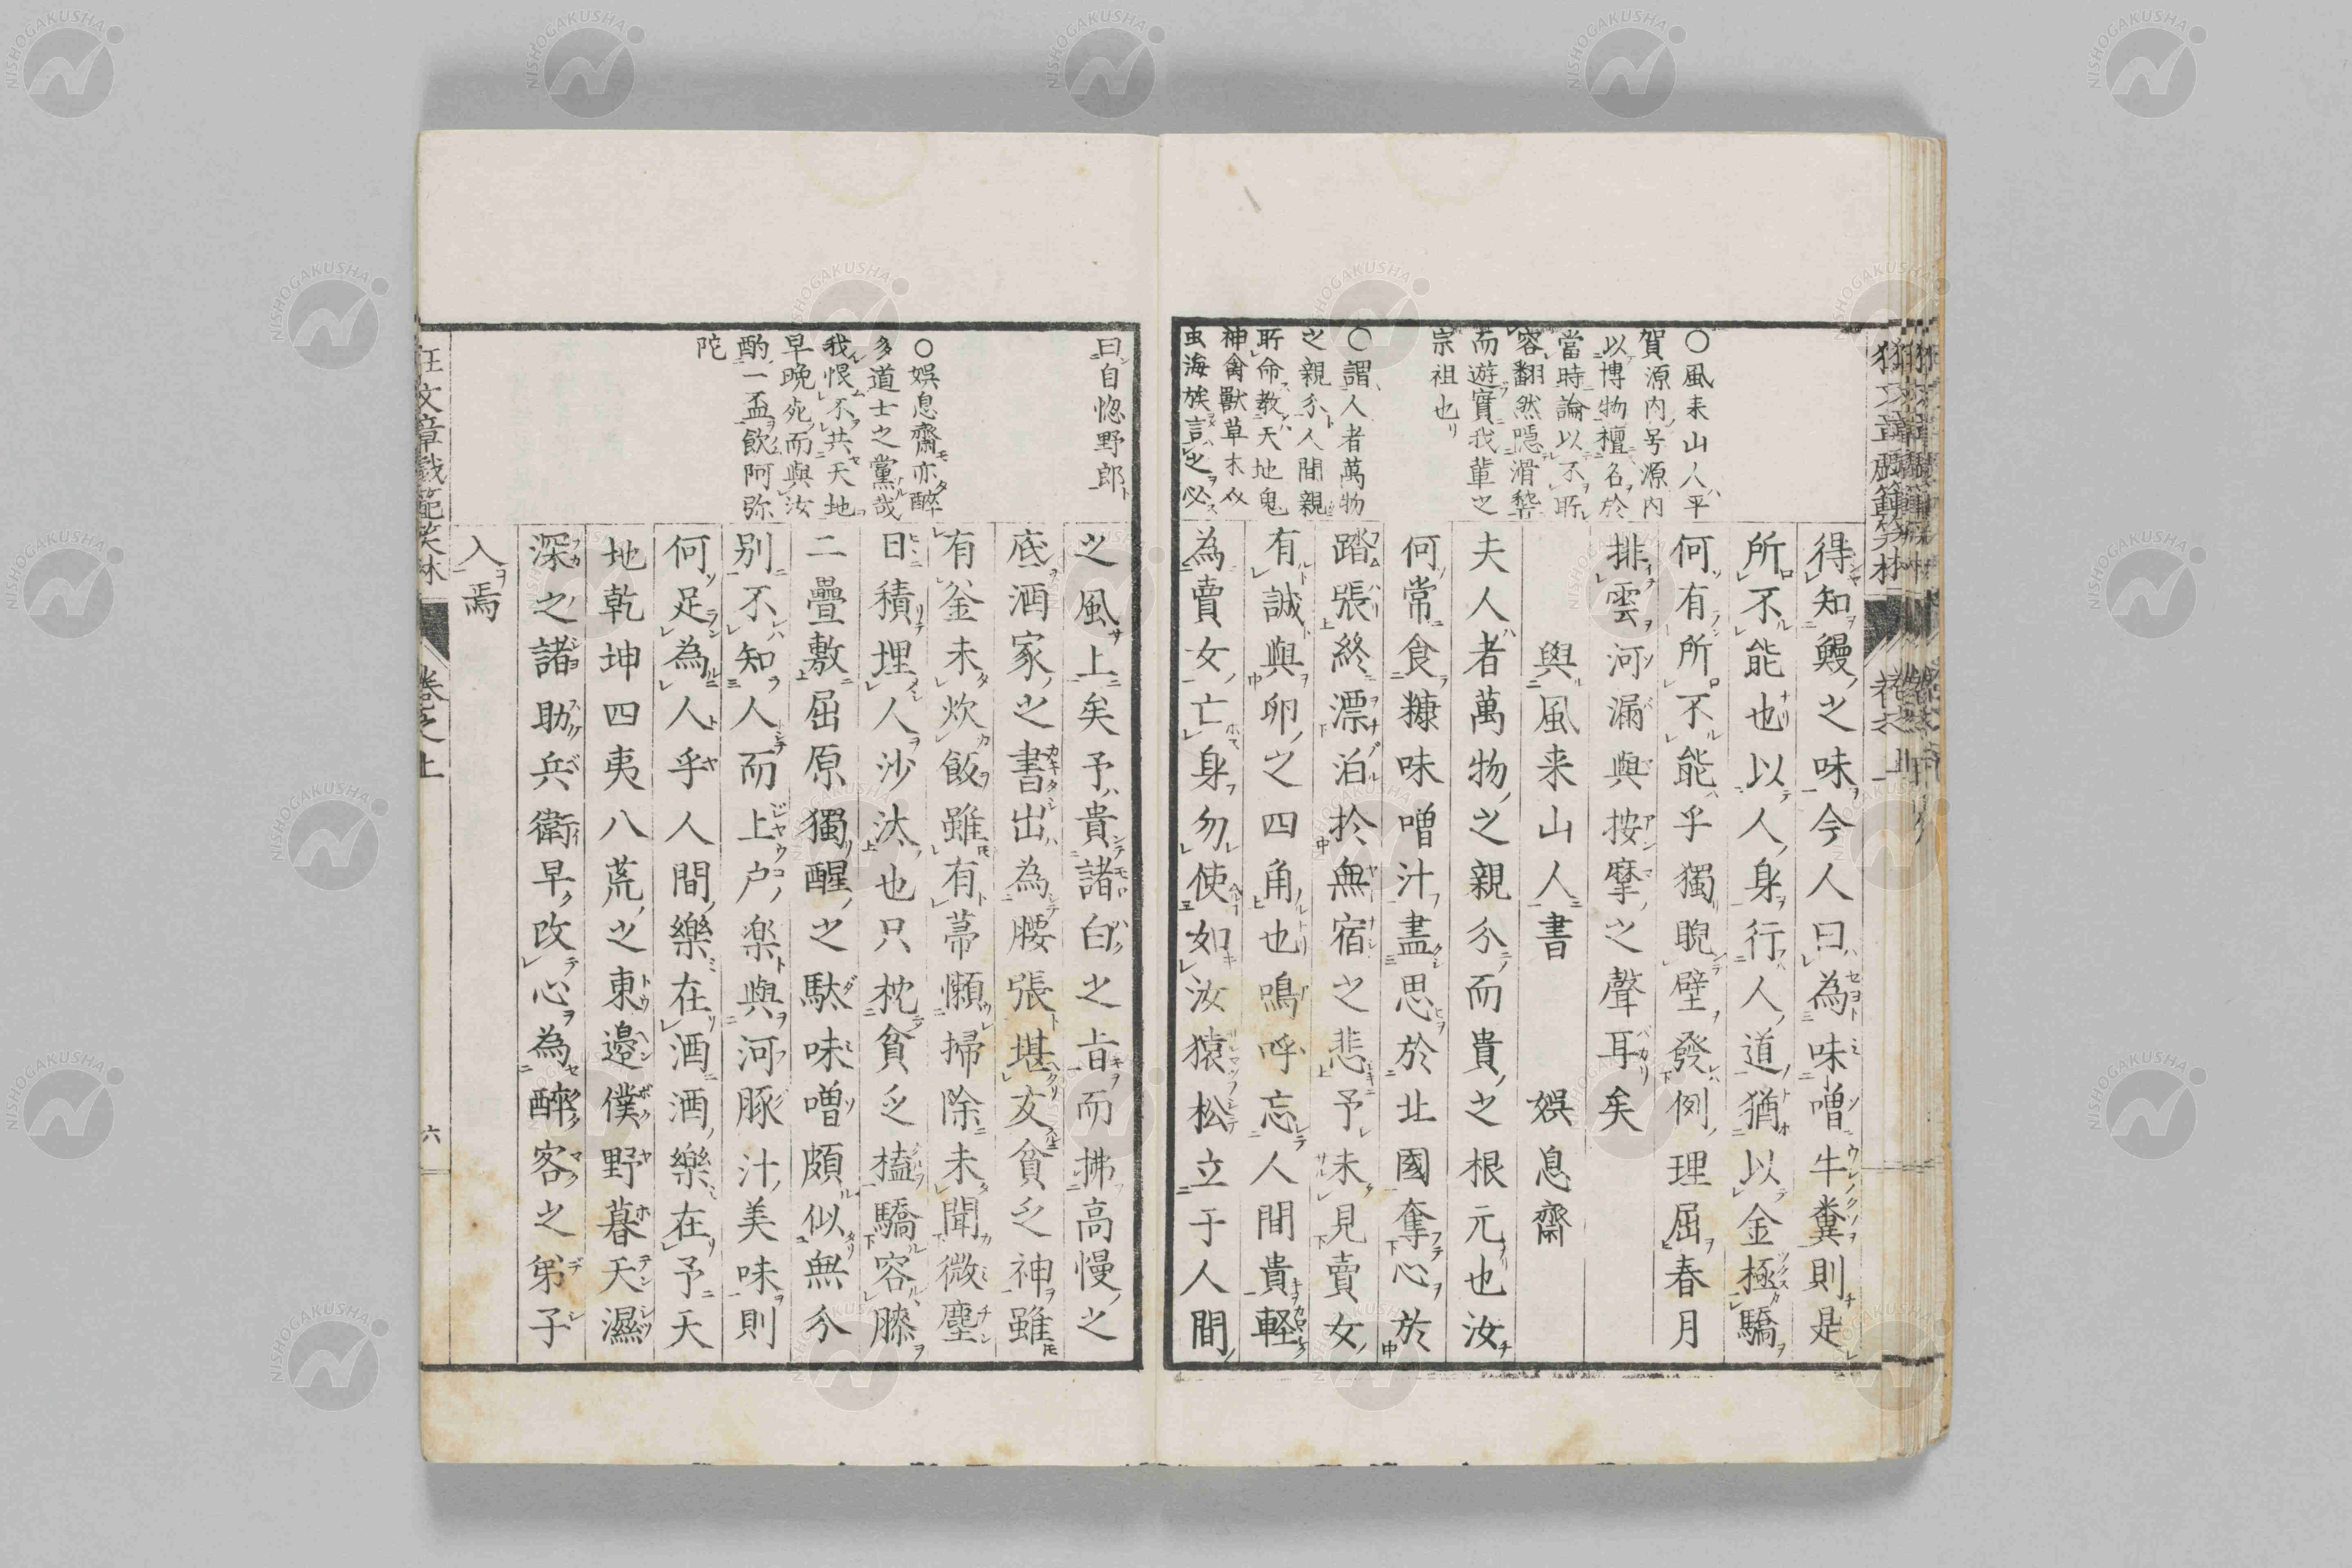 得知鰻之味今人曰為味噌牛糞則是
所不能也以人身行人道猶以金極驕
何有所不能乎獨睨壁發例理屈春月
排雲河漏與按摩之聲耳矣
與風来山人書 娯息齋
夫人者萬物之親分而貴之根元也汝
何常食糠味噌汁盡思於北國奪心於
踏張終漂泊於無宿之悲予未見賣女
有誠與卵之四角也鳴呼忘人間貴軽
為賣女亡身勿使如汝猿松立于人間
○風来山人平
賀源内号源内
以博物檀名於
當時論以不所
容翻然隠滑稽
而遊實我輩之
宗祖也
○謂人者萬物
之親分人間親
所命教天地鬼
神禽獸草木
虫海族言之必
之風上矣予貴諸白之旨而拂高慢之
底酒家之書出為腰張堪女貧乏神雖
有釜未炊飯雖有蒂懶掃除未聞微塵
日積埋人沙汰也只枕貧乏榼驕容膝
二疊敷屈原獨醒之駄味噌頗似無分
別不知人而上戸楽與河豚汁美味則
何足為人乎人間樂在酒酒樂在予天
地乾坤四夷八荒之東邉僕野暮天濕
深之諸助兵衛早改心為醉客之弟子
入焉
曰自惚野郎
○娯息齋亦醉
多道士之黨哉
我恨不共天地
早晩死而與汝
酌一盃飲阿弥
陀
狂文章戯範笑林 卷之上 六
NISHOGAKUSHA